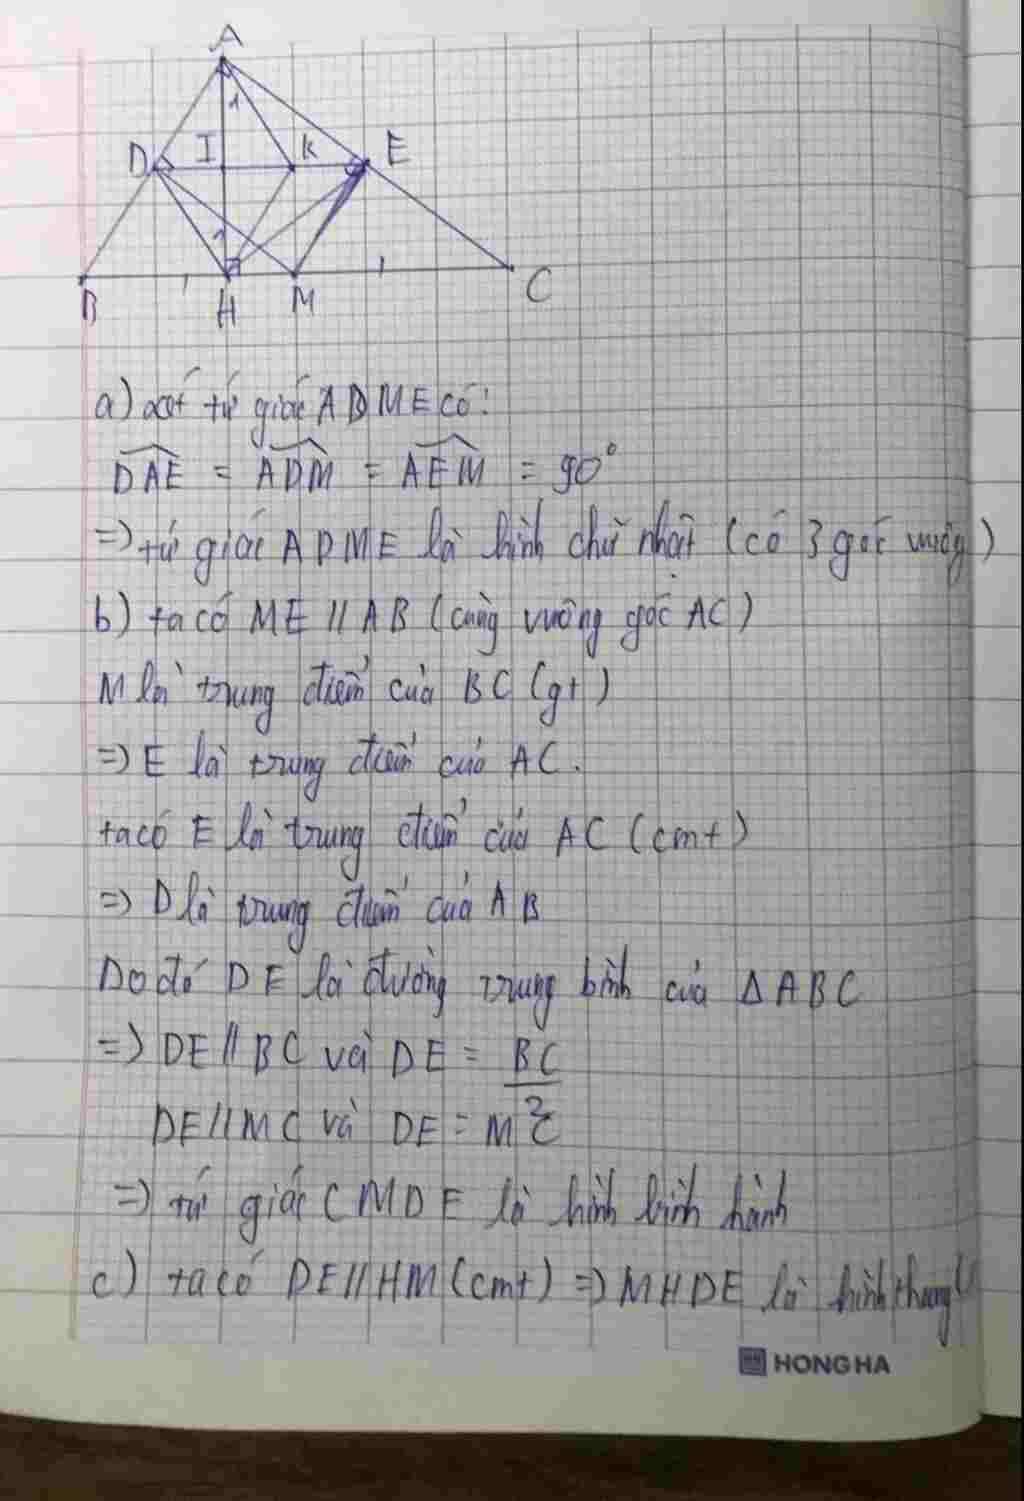 A
1
D I K E
1
B H M C
a) xét tứ giác ADME có:
DAE = ADM = AEM = 90°
=> tứ giác ADME là hình chữ nhật (có 3 góc vuông)
b) ta có ME // AB (cùng vuông góc AC)
M là trung điểm của BC (gt)
=> E là trung điểm của AC.
ta có E là trung điểm của AC (cmt)
=> D là trung điểm của AB
Do đó DE là đường trung bình của Δ ABC
=> DE // BC và DE = BC
2
DE // MC và DE = MC
=> tứ giác CMDE là hình bình hành
c) ta có DE // HM (cmt) => MHDE là hình thang (
HONG HA